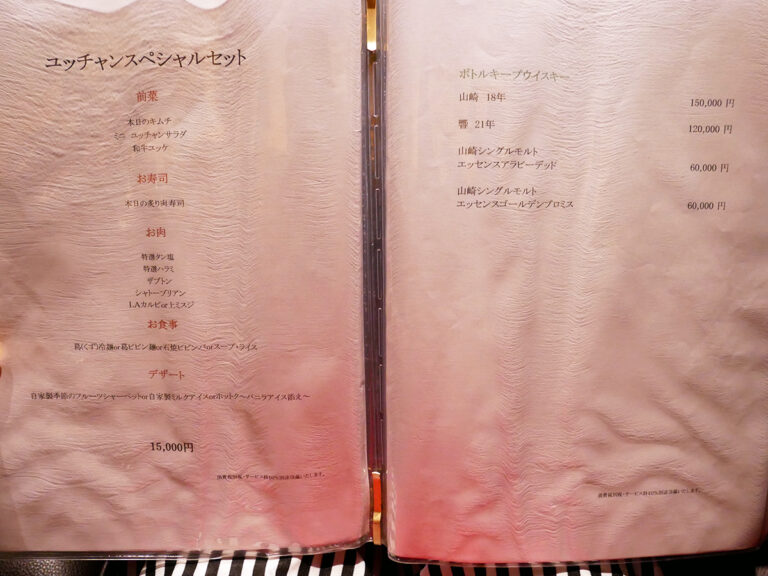 ユッチャンスペシャルセット
前菜
本日のキムチ
ミニ ユッチャンサラダ
和牛ユッケ
お寿司
本日の炙り肉寿司
お肉
特選タン塩
特選ハラミ
ザブトン
シャトーブリアン
LAカルビor上ミスジ
お食事
葛(くず)冷麺or葛ビビン麺or石焼ビビンバorスープ・ライス
デザート
自家製季節のフルーツシャーベットor自家製ミルクアイスorホットク～バニラアイス添え～
15,000円
消費税10%・サービス料10%別途頂戴いたします。
ボトルキープウイスキー
山崎 18年
150,000 円
響 21年
120,000 円
山崎シングルモルト
エッセンスアラビーデッド
60,000 円
山崎シングルモルト
エッセンスゴールデンプロミス
60,000 円
消費税10%・サービス料10%別途頂戴いたします。